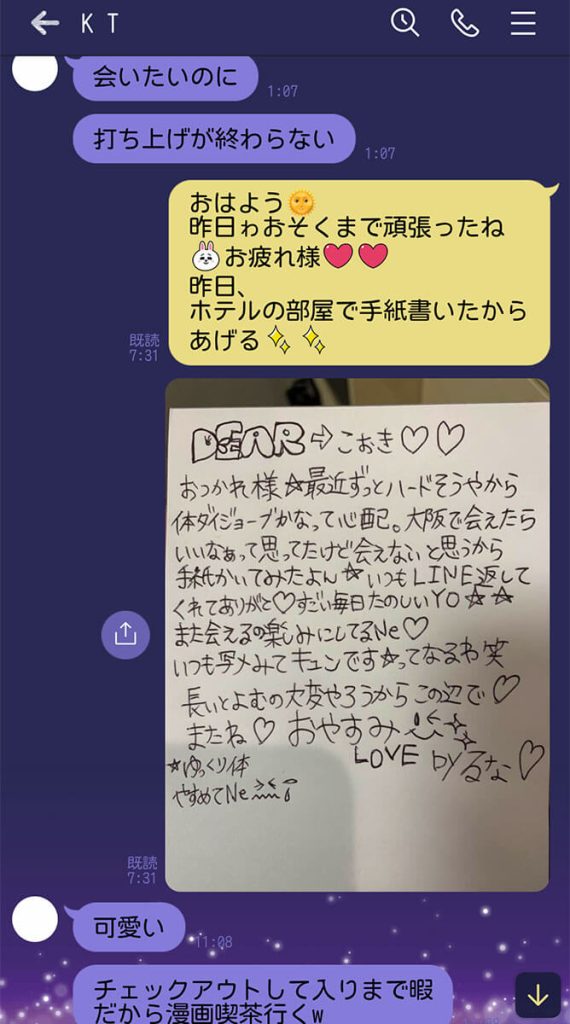 K T
会いたいのに
1:07
打ち上げが終わらない
1:07
おはよう🌞
昨日ゎおそくまで頑張ったね
🐰お疲れ様❤️❤️
昨日、
ホテルの部屋で手紙書いたから
あげる✨✨
既読
7:31
DEAR⇨こおき♡♡
おつかれ様☆最近ずっとハードそうやから
体ダイジョーブかなって心配。大阪で会えたら
いいなぁって思ってたけど会えないと思うから
手紙かいてみたよん☆いつもLINE返して
くれてありがと♡すごい毎日たのしいYO☆☆
また会えるの楽しみにしてるNe♡
いつも写メみてキュンです☆ってなるわ笑
長いとよむの大変やろうからこの辺で♡
またね♡おやすみ
LOVE byるな♡
☆ゆっくり体
やすめてNe
既読
7:31
可愛い
11:08
チェックアウトして入りまで暇
だから漫画喫茶行くw